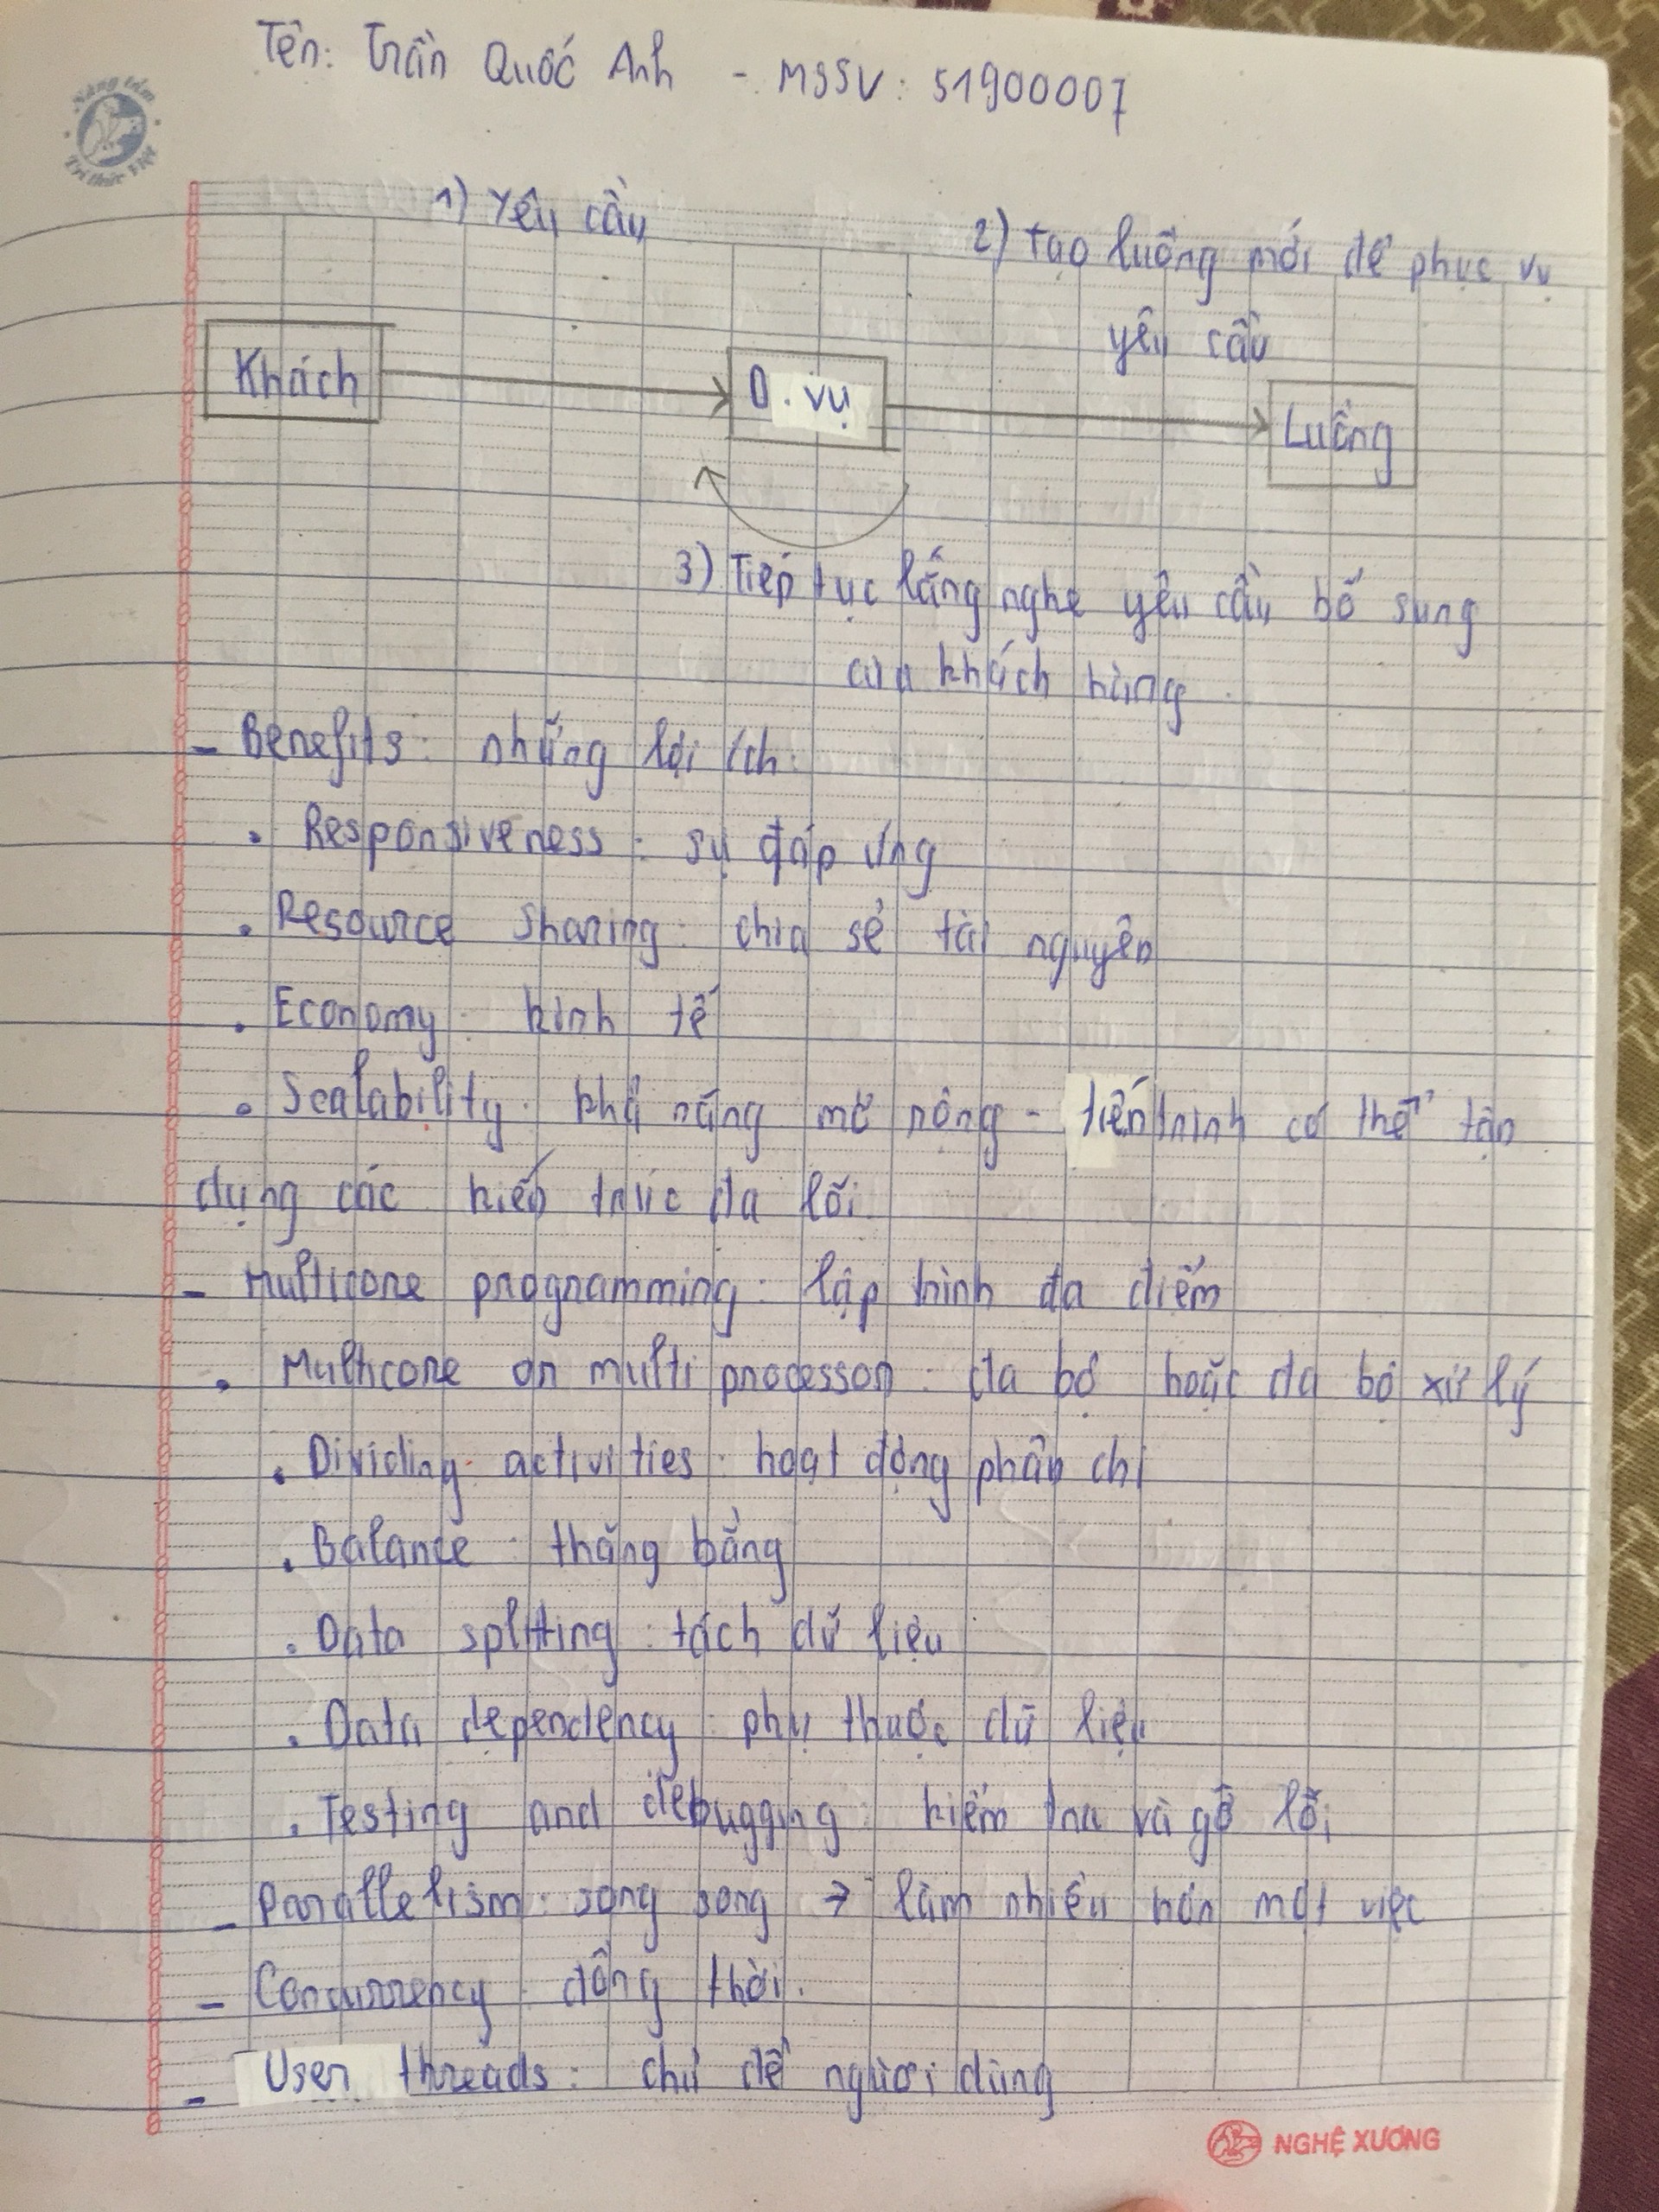 Tên: Trần Quốc Anh - MSSV: 51900007
Nâng tầm
Tri thức Việt
1) Yêu cầu
2) Tạo luồng mới để phục vụ
yêu cầu
Khách
D.vụ
Luồng
3) Tiếp tục lắng nghe yêu cầu bổ sung
của khách hàng.
- Benefits: những lợi ích.
. Responsiveness: sự đáp ứng
. Resource sharing: chia sẻ tài nguyên
. Economy: kinh tế
. Scalability: khả năng mở rộng - tiến trình có thể tận
dụng các kiến trúc đa lõi.
- Multicore programming: lập trình đa điểm
. Multicore or multi processor: đa bộ hoặc đa bộ xử lý
. Dividing activities: hoạt động phân chi
. Balance: thăng bằng
. Data splitting: tách dữ liệu
. Data dependency: phụ thuộc dữ liệu
. Testing and debugging: kiểm tra và gỡ lỗi
- Parallelism: song song → làm nhiều hơn một việc
- Concurrency: đồng thời.
- User threads: chủ đề người dùng
NGHỆ XƯƠNG